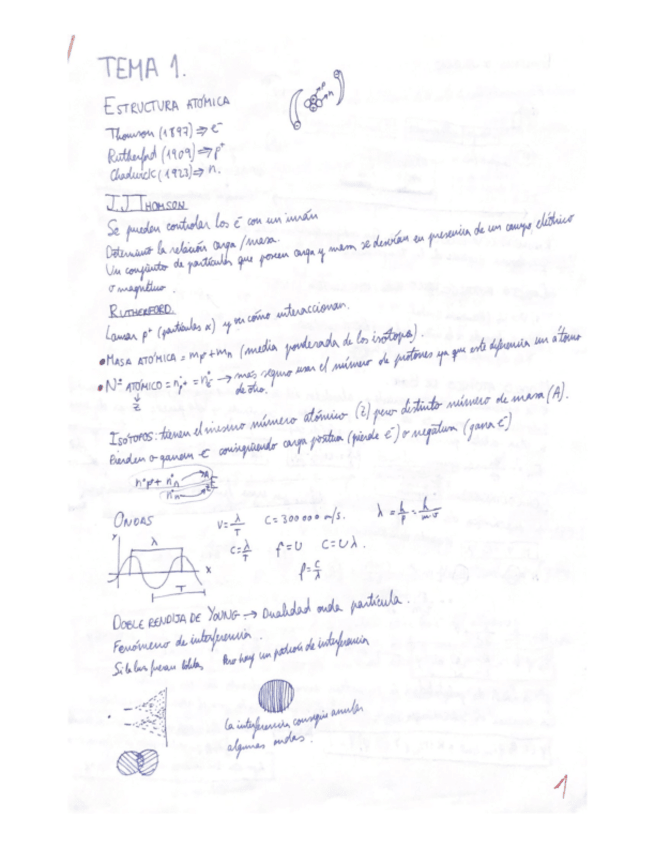 TEMA 1.
ESTRUCTURA ATÓMICA
Thomson (1897) ⇒ e⁻
Rutherford (1909) ⇒ p⁺
Chadwick (1923) ⇒ n.
J.J THOMSON
Se pueden controlar los e⁻ con un imán
Determinó la relación carga/masa.
Un conjunto de partículas que poseen carga y masa, se desvían en presencia de un campo eléctrico
o magnético.
RUTHERFORD.
Lanzar p⁺ (partículas α) y ver cómo interaccionan.
• MASA ATÓMICA = mp + mn (media ponderada de los isótopos).
• Nº ATÓMICO = nºp⁺ = nºe⁻ → más seguro usar el número de protones ya que este diferencia un átomo
de otro.
Z
ISÓTOPOS: tienen el mismo número atómico (z) pero distinto número de masa (A).
Pierden o ganan e⁻ consiguiendo carga positiva (pierde e⁻) o negativa (gana e⁻)
nºp⁺ + nºn → A
E
ONDAS
V = λ/T C = 300000 m/s. λ = h/p = h/m·v
y λ x T
C = λ/T f = υ C = υλ.
f = C/λ
DOBLE RENDIJA DE YOUNG → Dualidad onda partícula.
Fenómeno de interferencia.
Si la luz fueran bolitas, Pero hay un patrón de interferencia
La interferencia consigue anular
algunas ondas.
1